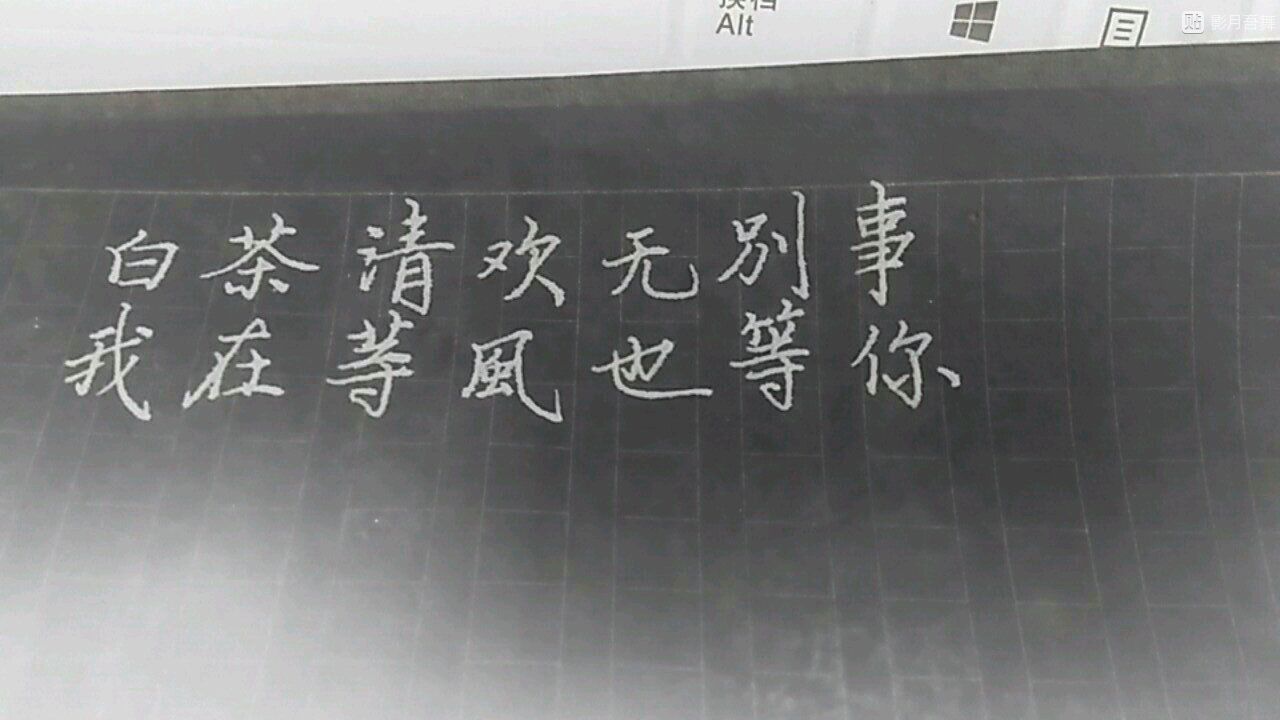 Alt
影月音舞
白茶请欢无别事
我在等風也等你